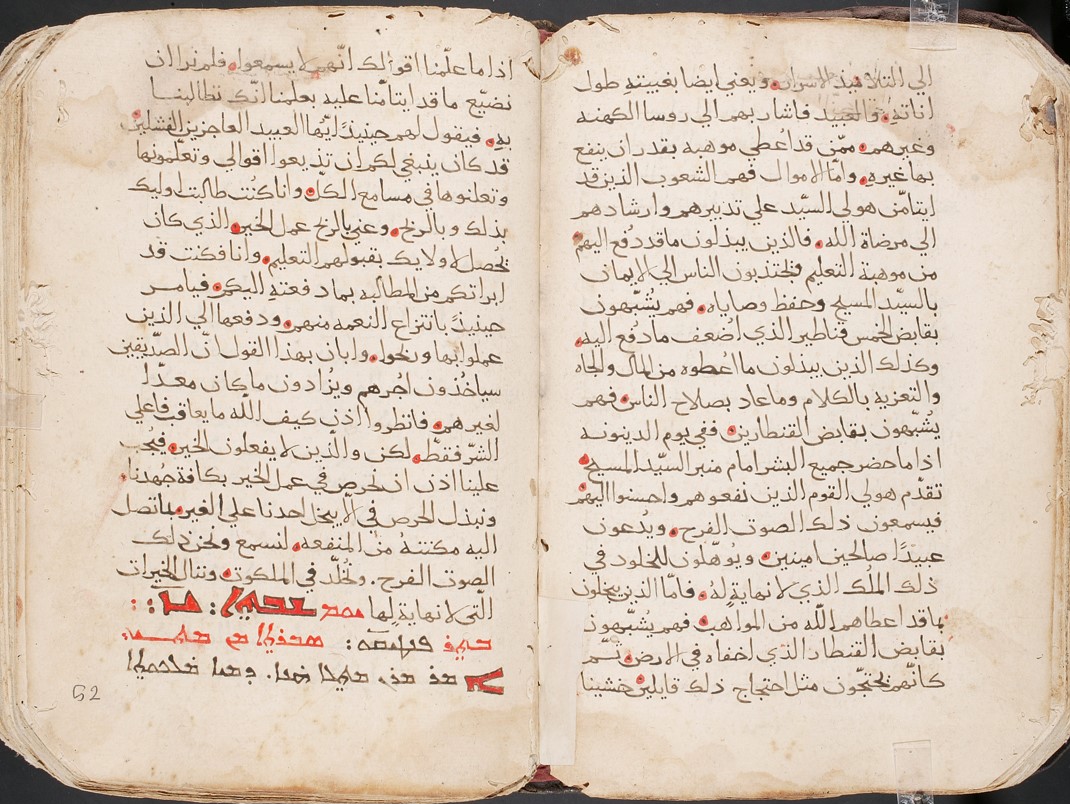 الي التلاميذ الاسرار. ويعني ايضا بغيبته طول
اناته. والعبيد فاشار بهم الي روسا الكهنه
وغيرهم. ممّن قد اُعطي موهبه يقدر ان ينفع
بها غيره. وامّا الاموال فهم الشعوب الذين قد
ايتامّن هولي السيّد علي تدبيرهم وارشادهم
الي مرضاة الله. فالذين يبذلون ما قد دُفع اليهم
من موهبة التعليم فيجتذبون الناس الي الايمان
بالسيّد المسيح وحفظ وصاياه. فهم يُشبّهون
بقابض الخمس قناطير الذي اضعف ما دُفع اليه.
وكذلك الذين يبذلون ما اُعطوه من المال والجاه
والتعزيه بالكلام وما عاد بصلاح الناس. فهم
يُشبّهون بقابض القنطارين. ففي يوم الدينونه
اذا ما حضر جميع البشر امام منبر السيّد المسيح
تقدّم هولي القوم الذين نفعوهم واحسنوا اليهم
فيسمعون ذلك الصوت الفرح. ويُدعون
عبيدًا صالحين امينين. ويوهّلون للخلود في
ذلك المُلك الذي لا نهاية لهُ. فامّا الذين يبخلون
بما قد اعطاهم اللّه من المواهب. فهم يُشبّهون
بقابض القنطار الذي اخفاه في الارض. ثمّ
كانّهم يحتجّون مثل احتجاج ذلك قايلين خشينا
اذا ما علّمنا اقوالك انّهم لا يسمعوا. فلم نرا ان
نضيّع ما قد ايتامنّا عليه بعلمنا انّك تطالبنا
به. فيقول لهم حينيذٍ ايّها العبيد العاجزين الفشلين
قد كان ينبغي لكم ان تذيعوا اقوالي وتعلّمونها
وتعلنوها في مسامع الكل. وانا كنُت طالبت اوليك
بذلك وبالربح. وعني بالربح عمل الخير. الذي كان
يحُصل لاولايك بقبولهم التعليم. وانا فكنت قد
ابراتكم من المطالبه بما دفعته اليكم. فيامر
حينيذً بانتزاع النعمه منهم. ودفعها الي الذين
عملوا بها ونحوا. وابان بهذا القول انّ الصدّيقين
سياخُذون اجُرهم ويُزادون ما كان معدًّا
لغيرهم. فانظروا اذن كيف اللّه ما يعاقب فاعلي
الشرّ فقطّ. لكن والّذين لا يفعلون الخير. فيُجب
علينا اذن ان نحرص في عمل الخير بكافة جُهدنا.
ونبذل الحرص في الّا يبخل احدنا علي الغير بما تصل
اليه مكنتهُ من المنفعه. لنسمع نحن ذلك
الصوت الفرح. ونُخلّد في الملكوت. وننال الخيرات
الّتي لا نهاية لها
52